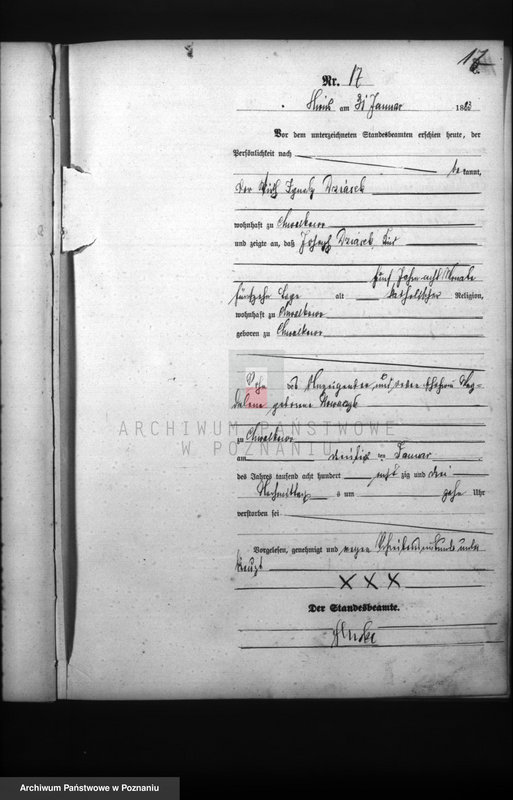 17
Nr. 17
am 31 Januar 1883
Vor dem unterzeichneten Standesbeamten erschien heute, der
Persönlichkeit nach
be kannt,
der Wirth Ignatz Dziasek
wohnhaft zu
und zeigte an, daß Joseph Dziasek
fünf Jahre acht Monate
fünfzehn Tage alt katholischer Religion,
wohnhaft zu
geboren zu
Sohn des Anzeigenden und seiner Ehefrau Mag-
dalena geborene Nowaczyk
ARCHIWUM PAŃSTWOWE
W POZNANIU
zu
am dreißig ten Januar
des Jahres tausend acht hundert acht zig und drei
Nachmittags um zehn Uhr
verstorben sei
Vorgelesen, genehmigt und wegen Schreibensunkunde unter
kreuzt
X X X
Der Standesbeamte.
Archiwum Państwowe w Poznaniu